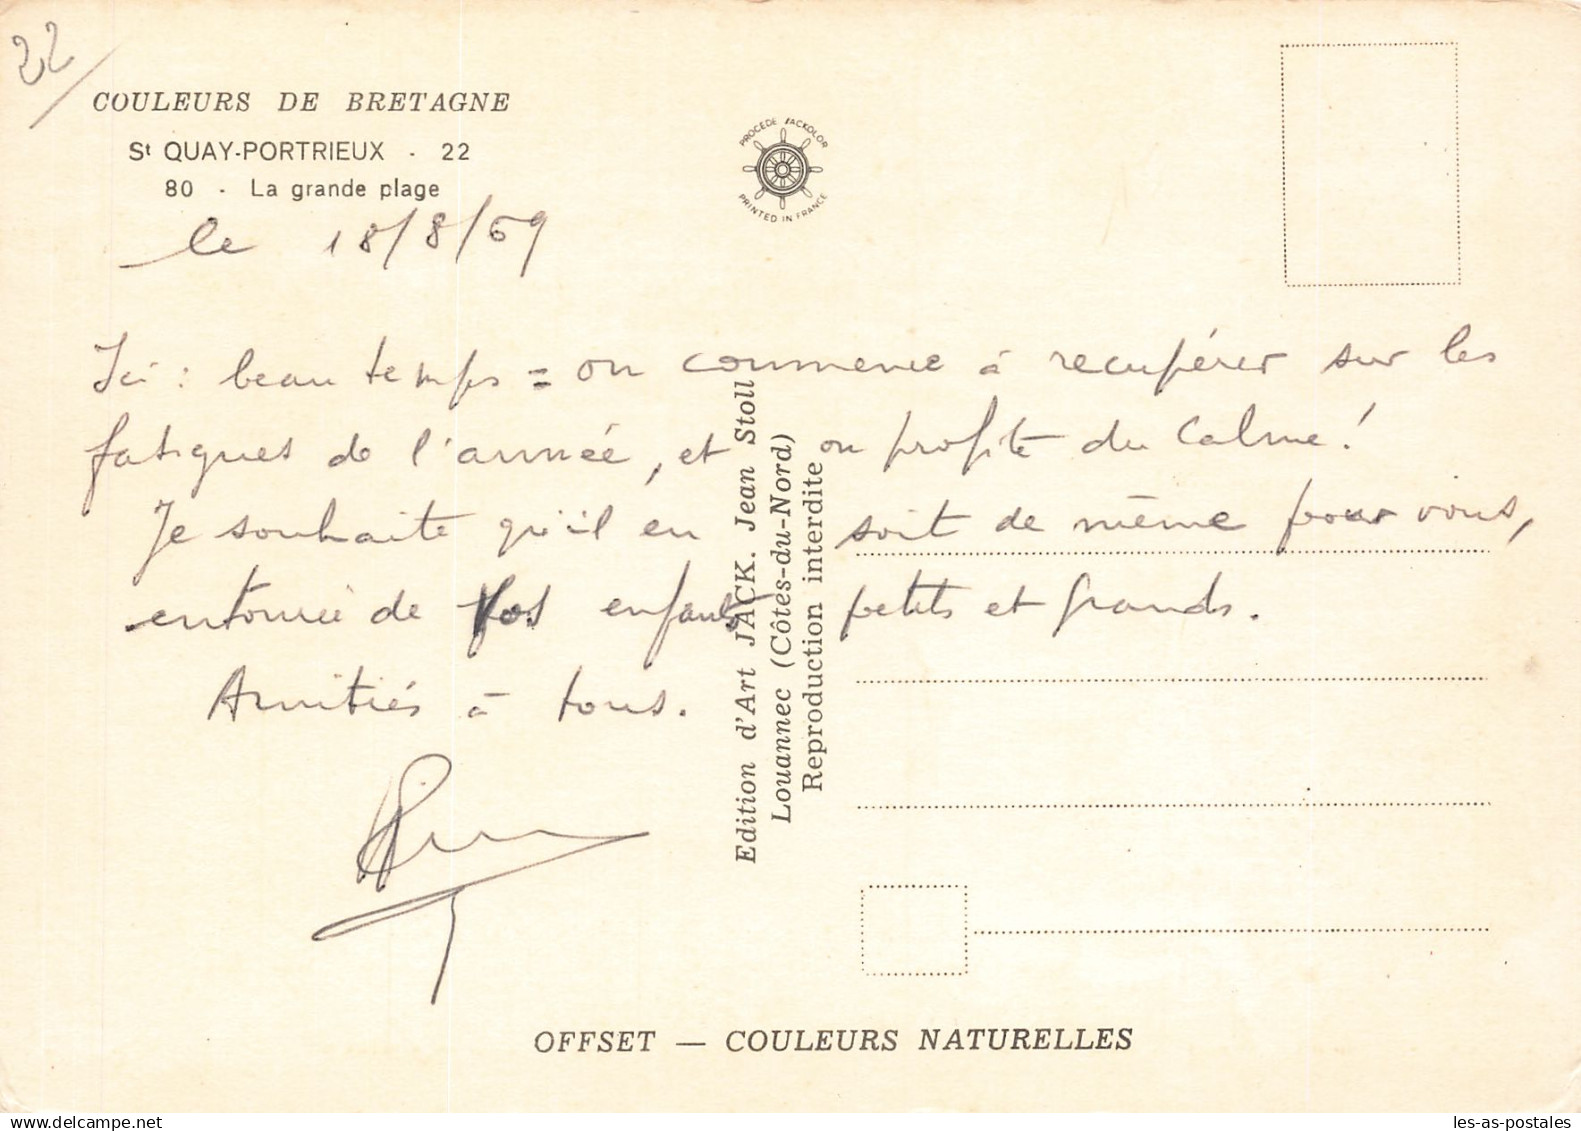 22
COULEURS DE BRETAGNE
St QUAY-PORTRIEUX - 22
80 - La grande plage
le 18/8/69
PROCEDE JACKOLOR
PRINTED IN FRANCE
Ici : beau temps = on commence à recupérer sur les
fatigues de l'année, et on profite du calme !
Je souhaite qu'il en soit de même pour vous,
entourée de vos enfants petits et grands.
Amitiés à tous.
Edition d'Art JACK. Jean Stoll
Louannec (Côtes-du-Nord)
Reproduction interdite
OFFSET — COULEURS NATURELLES
les-as-postales